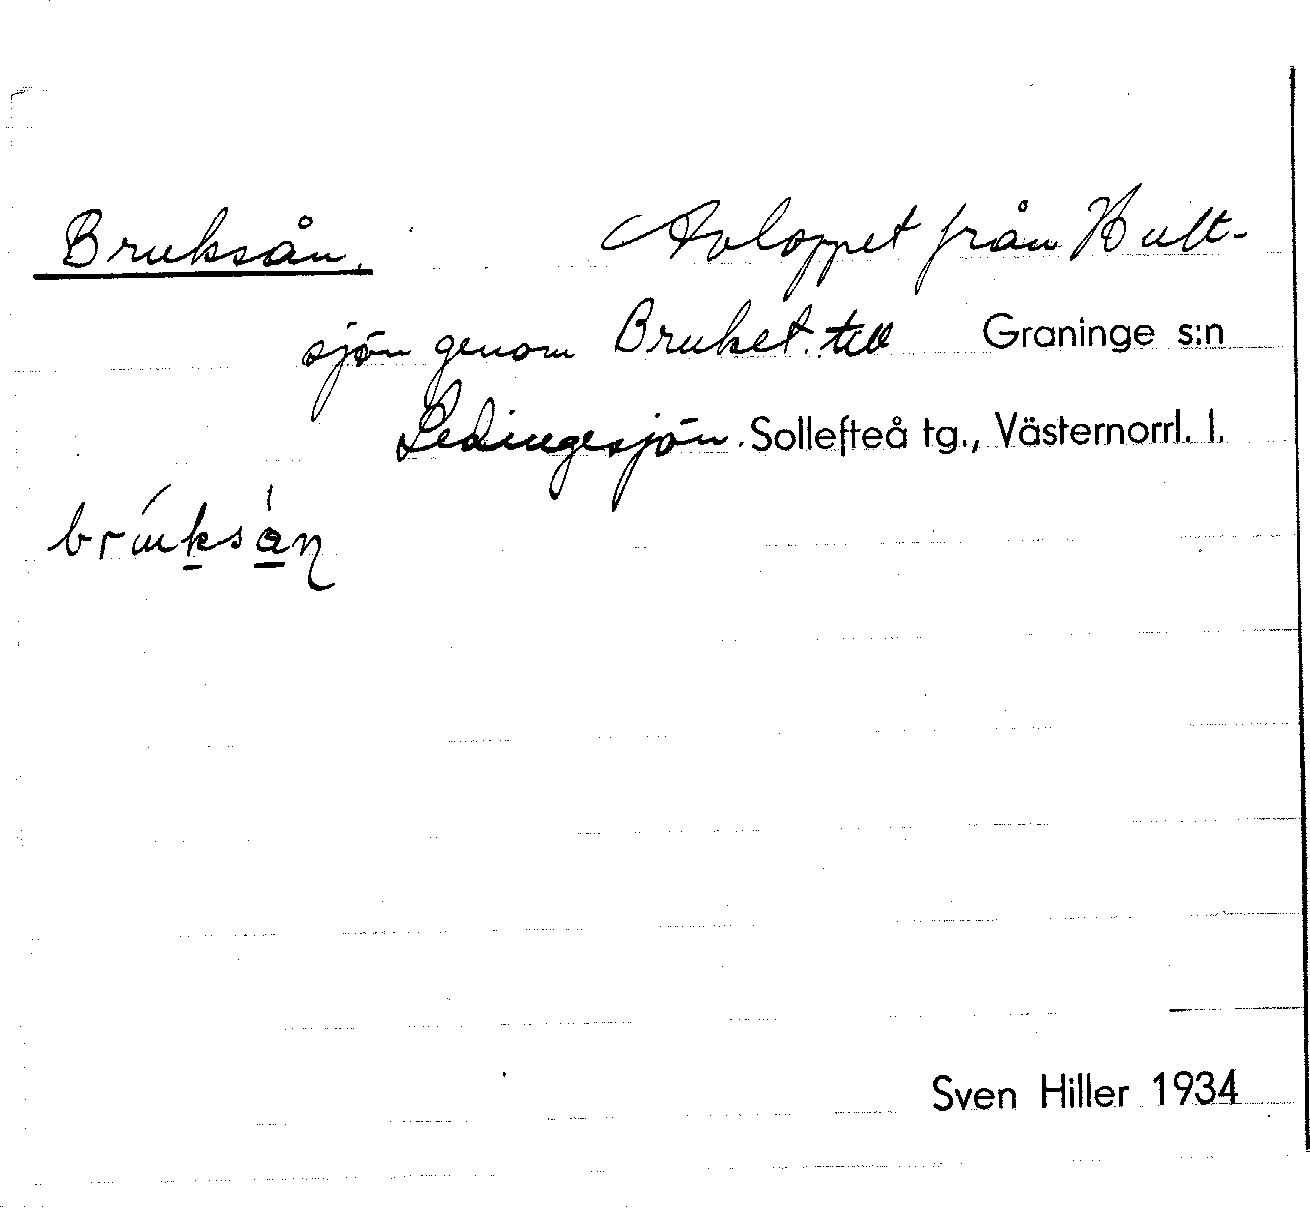 Bruksån. Avloppet från Hult-
sjön genom Bruket till Graninge s:n
Ledingesjön. Sollefteå tg., Västernorrl. l.
Sven Hiller 1934